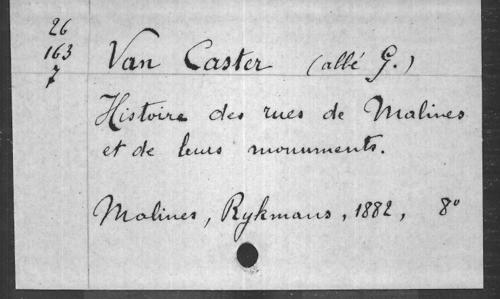 26
163
7
Van Caster (abbé G.)
Histoire des rues de Malines
et de leurs monuments.
Malines, Rykmans, 1882, 8°